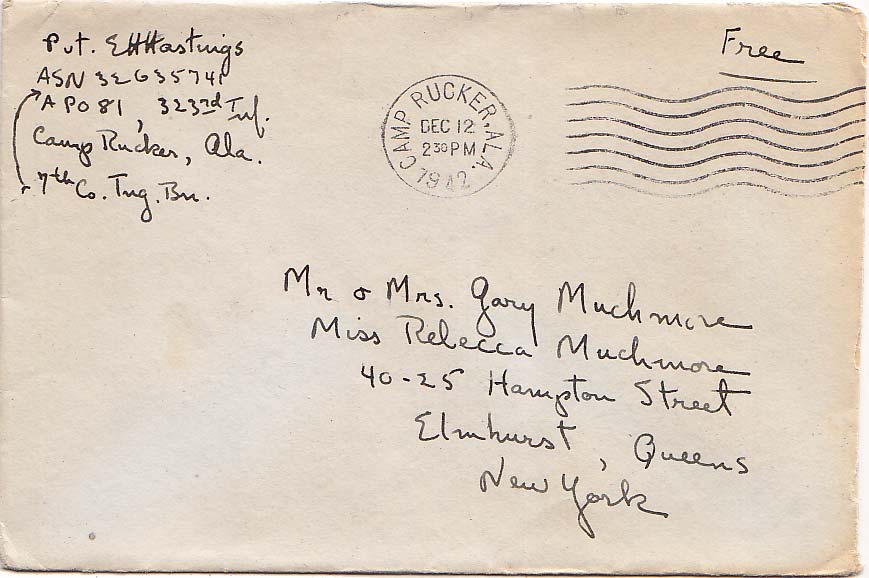 Pvt. EHHastings
ASN 32635741
APO 81, 323rd Inf.
Camp Rucker, Ala.
7th Co. Tng. Bn.
Free
CAMP RUCKER, ALA.
DEC 12
2 30 PM
1942
Mr & Mrs. Gary Muchmore
Miss Rebecca Muchmore
40-25 Hampton Street
Elmhurst, Queens
New York